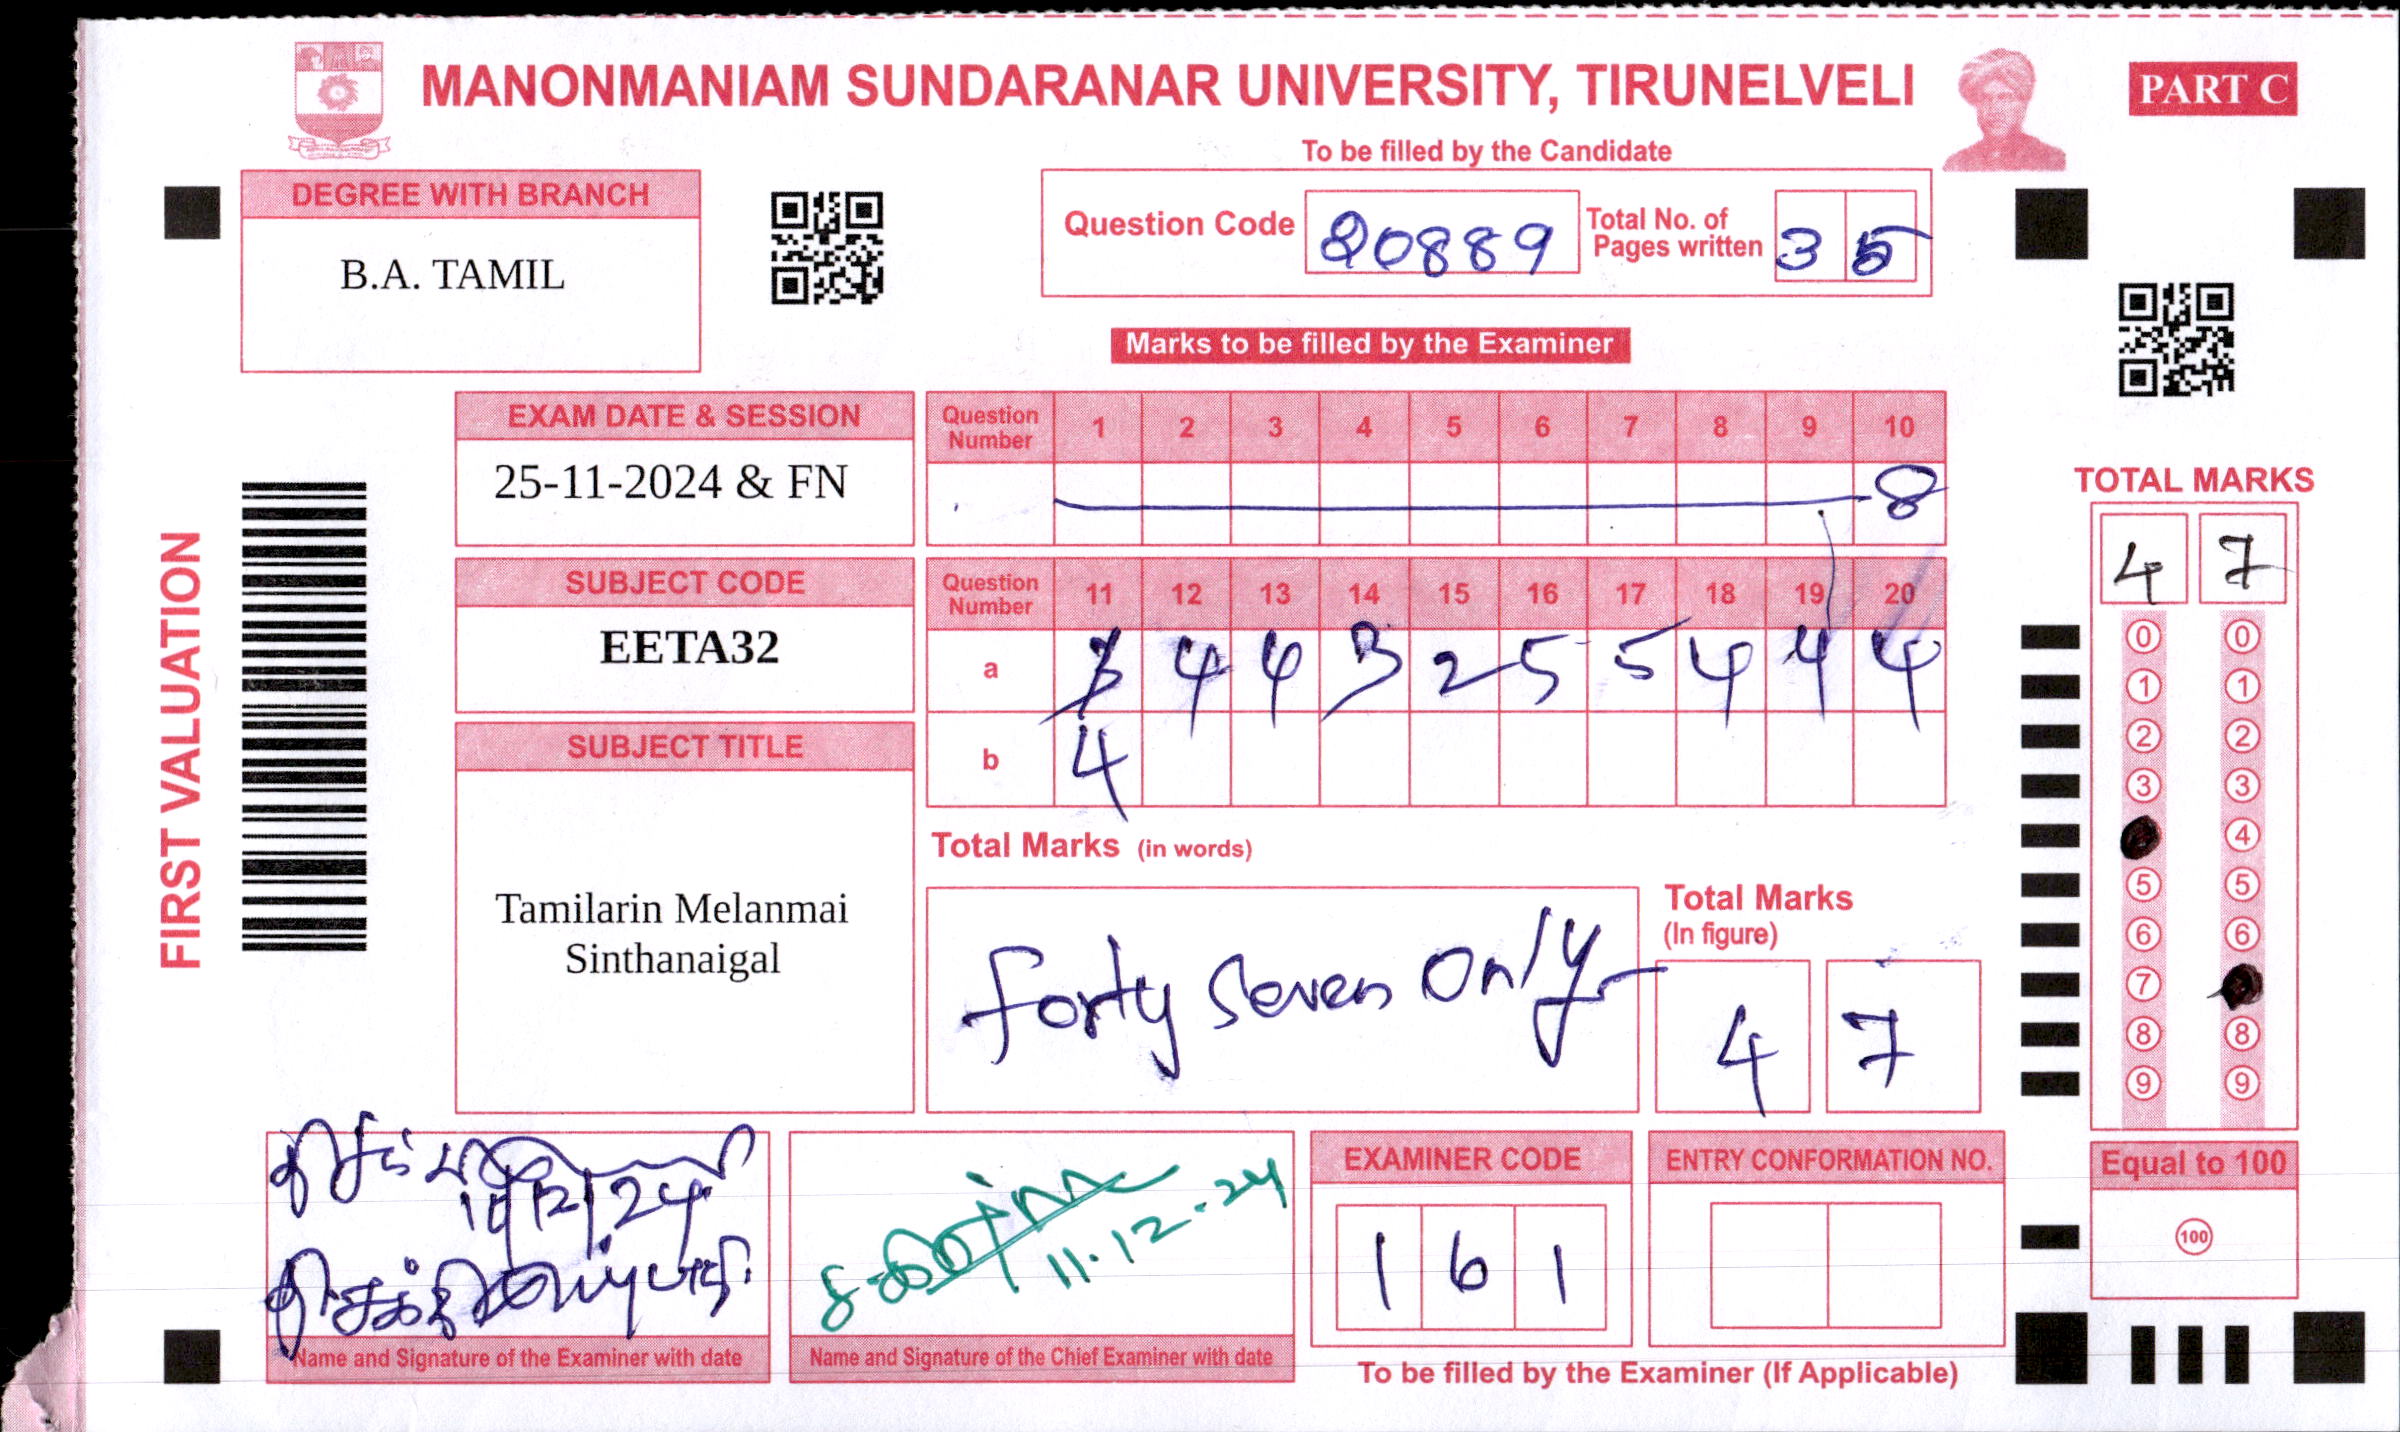 MANONMANIAM SUNDARANAR UNIVERSITY, TIRUNELVELI
PART C
To be filled by the Candidate
DEGREE WITH BRANCH
B.A. TAMIL
Question Code 20889 Total No. of Pages written 35
Marks to be filled by the Examiner
EXAM DATE & SESSION
25-11-2024 & FN
Question Number 1 2 3 4 5 6 7 8 9 10
8
SUBJECT CODE
EETA32
Question Number 11 12 13 14 15 16 17 18 19 20
a 3 4 4 3 2 5 5 4 4 4
b 4
SUBJECT TITLE
Tamilarin Melanmai
Sinthanaigal
Total Marks (in words)
Forty Seven Only
Total Marks
(In figure)
4 7
FIRST VALUATION
TOTAL MARKS
4 7
0 0
1 1
2 2
3 3
4
5 5
6 6
7
8 8
9 9
Equal to 100
100
11.12.24
Name and Signature of the Examiner with date
Name and Signature of the Chief Examiner with date
EXAMINER CODE
1 6 1
ENTRY CONFORMATION NO.
To be filled by the Examiner (If Applicable)